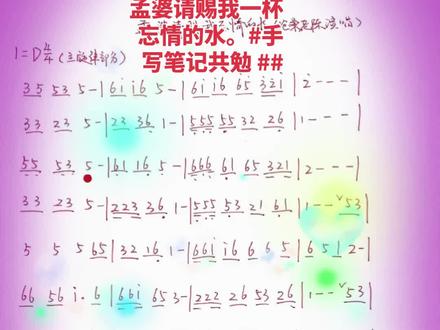 孟婆请赐我一杯
忘情的水。#手
写笔记共勉 ##
1=D 4/4 (主旋律部分)
35 53 5-|6i i6 5-|6i i6 65 321|2---|
33 23 5-|23 36 1-|555 55 32 26|1---|
55 53 5-|61 16 5-|666 61 65 321|2---|
33 23 5-|223 36 1-|555 53 21 61|1--53|
5 5 5 65|32 16 1-|66i i6 6 6 5|6 5 1 2-|
66 56 i. 6|66i 65 3-|222 26 53 26|1--53|